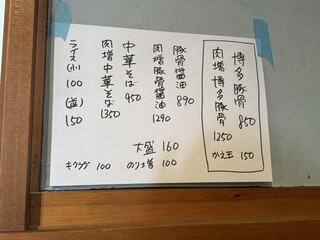 博多豚骨 850
肉増 博多豚骨 1250
かえ玉 150
豚骨醤油 890
肉増豚骨醤油 1290
中華そば 950
肉増中華そば 1350
ライス(小) 100
(並) 150
大盛 160
キクラゲ 100
のり増 100